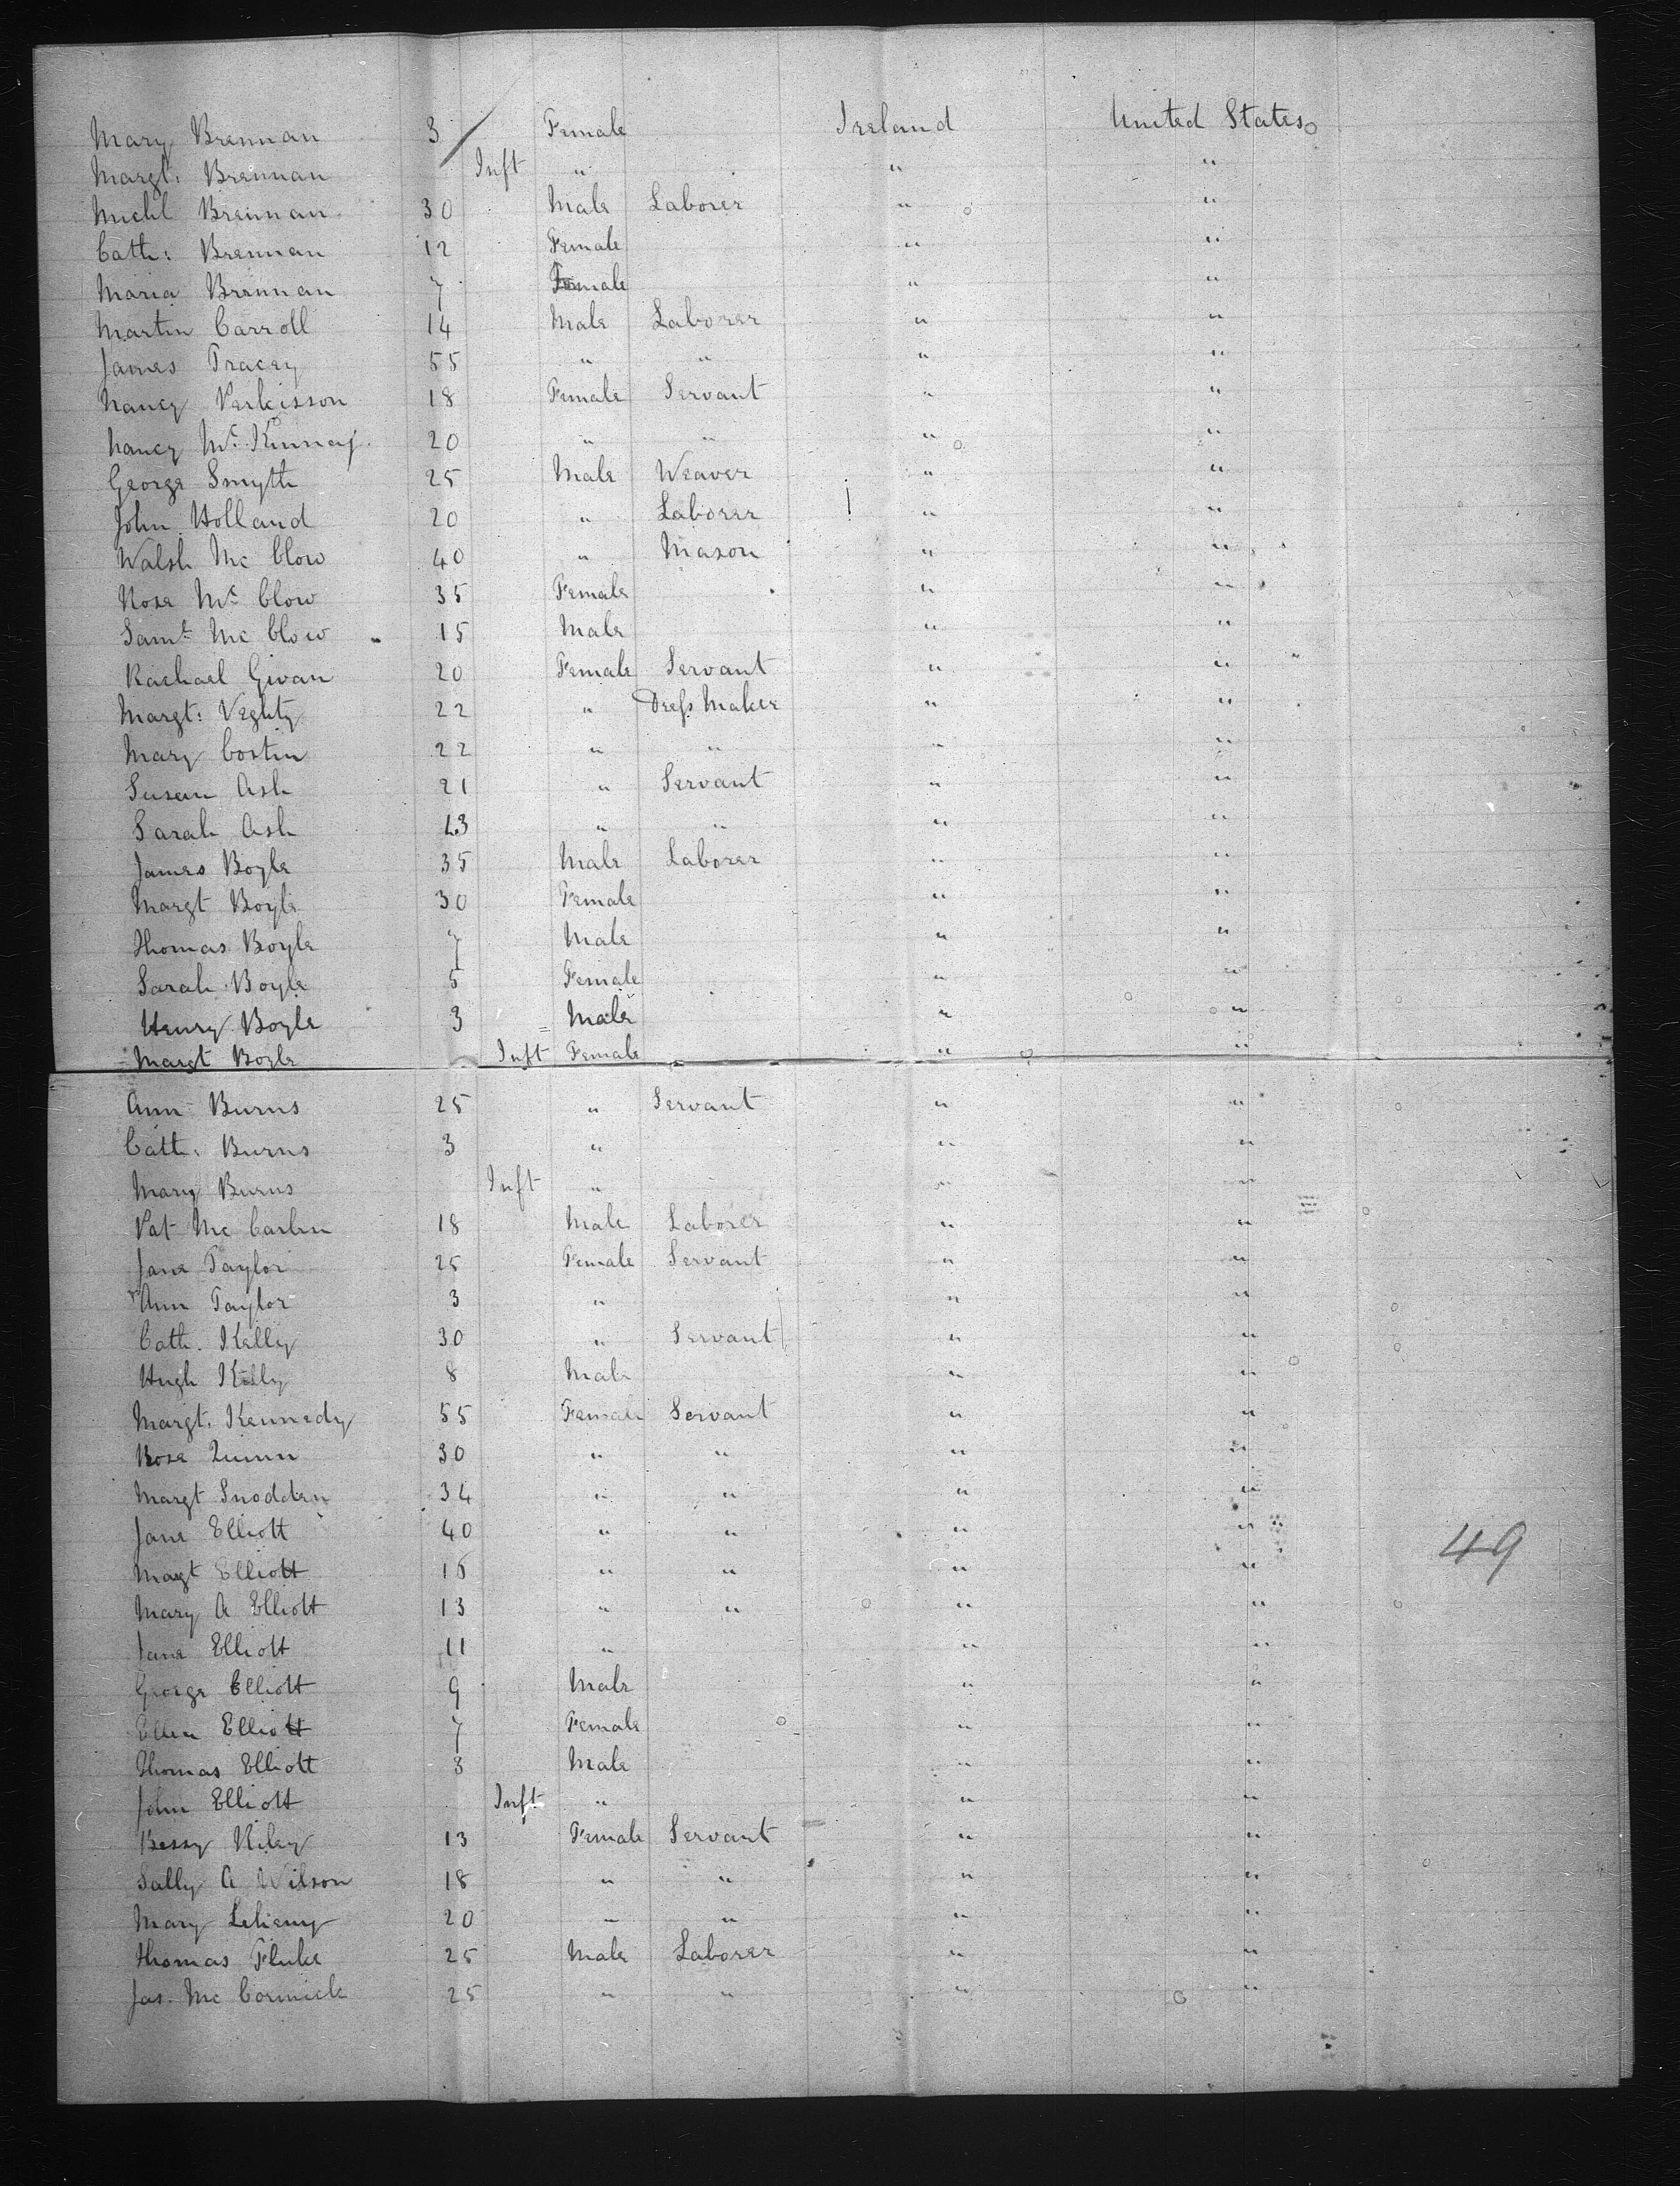 Mary Brennan 3 Female Ireland United States
Margt: Brennan Inft " " "
Michl Brennan 30 Male Laborer " "
Cath: Brennan 12 Female " "
Maria Brennan 7 Female " "
Martin Carroll 14 Male Laborer " "
James Tracey 55 " " " "
Nancy Perkisson 18 Female Servant " "
Nancy Mc Kinney 20 " " " "
George Smyth 25 Male Weaver " "
John Holland 20 " Laborer " "
Walsh Mc Clow 40 " Mason " "
Rosa Mc Clow 35 Female " "
Saml Mc Clow 15 Male " "
Rachael Givan 20 Female Servant " "
Margt: 22 " Dress Maker " "
Mary Costin 22 " " " "
Susan Ash 21 " Servant " "
Sarah Ash 13 " " " "
James Boyle 35 Male Laborer " "
Margt Boyle 30 Female " "
Thomas Boyle 7 Male " "
Sarah Boyle 5 Female " "
Henry Boyle 3 Male " "
Margt Boyle Inft Female " "
Ann Burns 25 " Servant " "
Cath: Burns 3 " " "
Mary Burns Inft " " "
Pat Mc Carlin 18 Male Laborer " "
Jane Taylor 25 Female Servant " "
Ann Taylor 3 " " "
Cath. Kelly 30 " Servant " "
Hugh Kelly 8 Male " "
Margt. Kennedy 55 Female Servant " "
Rosa Quinn 30 " " " "
Margt Snodden 34 " " " "
Jane Elliott 40 " " " "
49
Magt Elliott 16 " " " "
Mary A Elliott 13 " " " "
Jane Elliott 11 " " "
George Elliott 9 Male " "
Ellen Elliott 7 Female " "
Thomas Elliott 3 Male " "
John Elliott Inft " " "
Bessy Riley 13 Female Servant " "
Sally A Wilson 18 " " " "
Mary 20 " " " "
Thomas Fluke 25 Male Laborer " "
Jas. Mc Cormick 25 " " " "